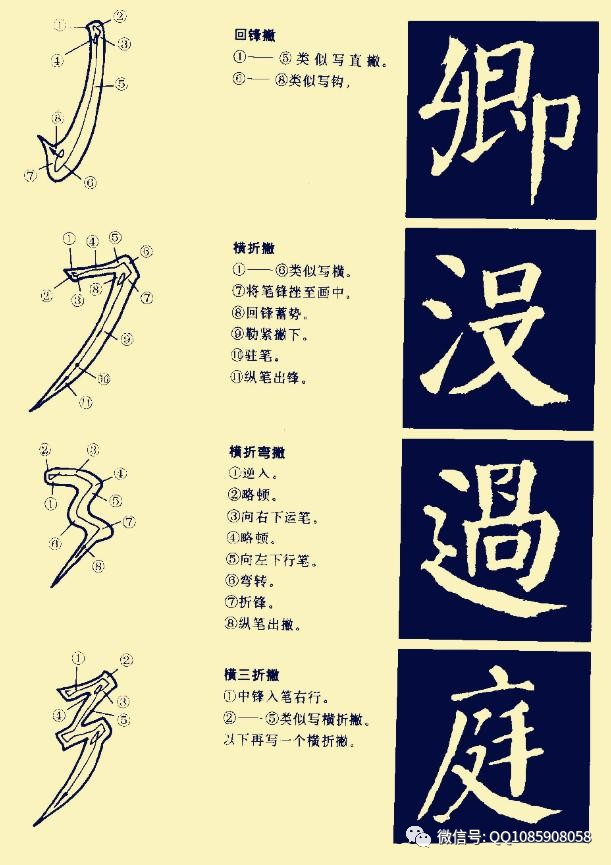 ①
②
③
④
⑤
⑥
⑦
⑧
回锋撇
①——⑤类似写直撇。
⑥——⑧类似写钩,
卿
①
②
③
④
⑤
⑥
⑦
⑧
⑨
⑩
⑪
横折撇
①——⑥类似写横。
⑦将笔锋挫至画中。
⑧回锋蓄势。
⑨勒紧撇下。
⑩驻笔。
⑪纵笔出锋。
没
①
②
③
④
⑤
⑥
⑦
⑧
横折弯撇
①逆入。
②略顿。
③向右下运笔。
④略顿。
⑤向左下行笔。
⑥弯转。
⑦折锋。
⑧纵笔出撇。
過
①
②
③
④
⑤
横三折撇
①中锋入笔右行。
②——⑤类似写横折撇。
以下再写一个横折撇。
庭
微信号: QQ1085908058